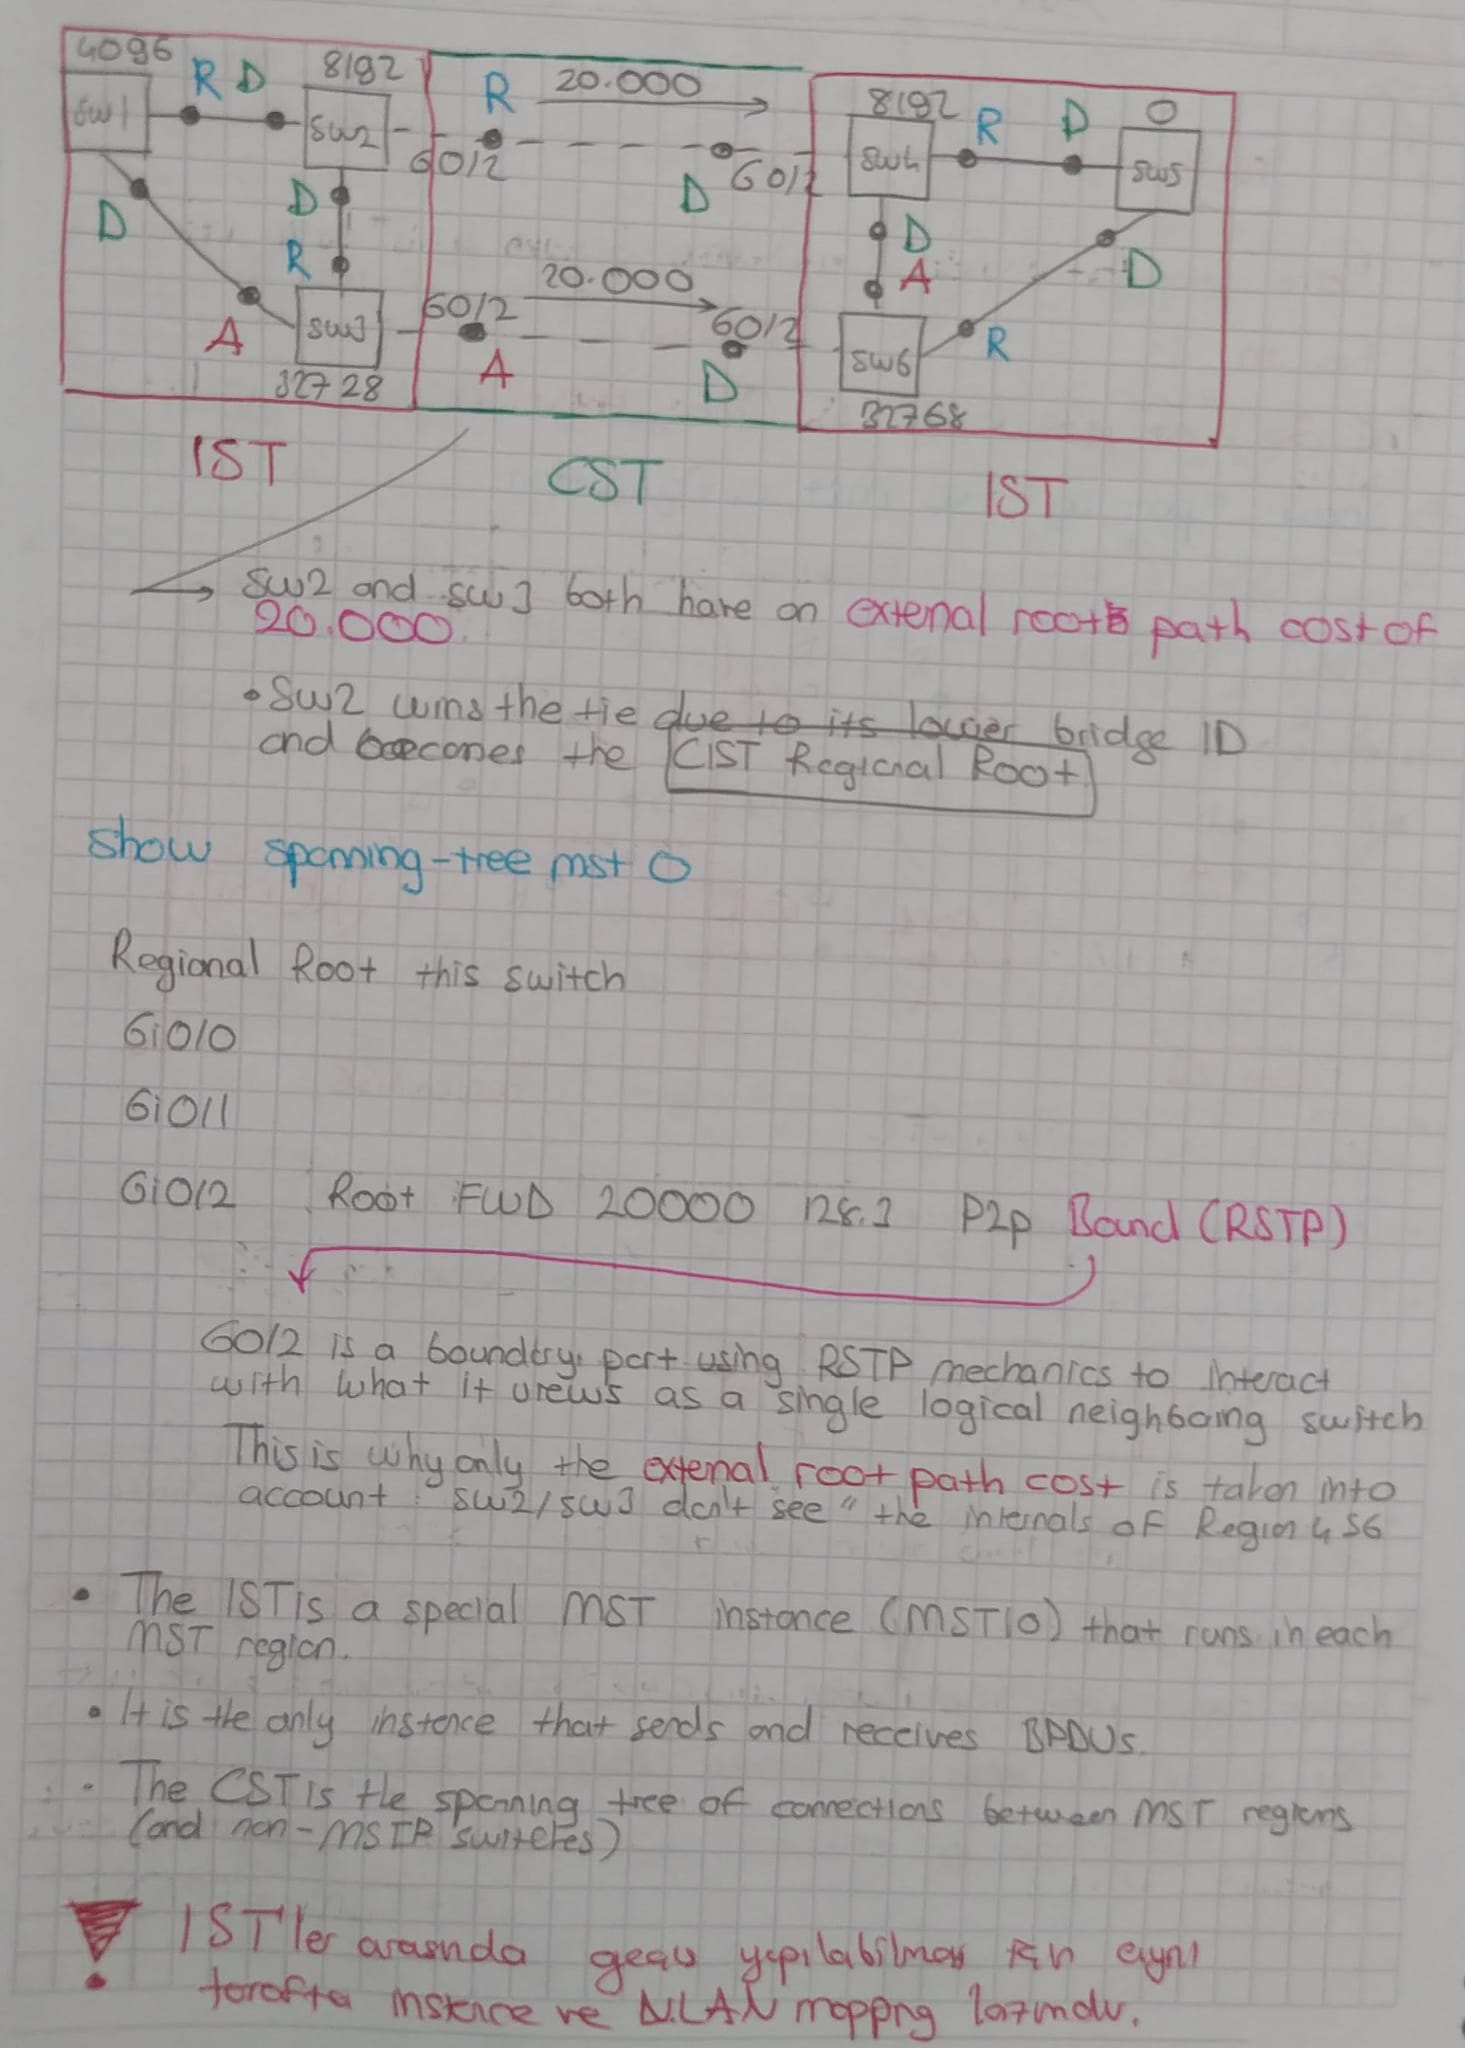 4096
R D
8192
R
20.000
8192
R
D
0
SW1
SW2
G0/2
D
G0/2
SW4
SW5
D
D
D
A
D
R
20.000
A
SW3
G0/2
A
G0/2
D
SW6
R
32728
32768
IST
CST
IST
SW2 and SW3 both have an external root path cost of
20.000.
• SW2 wins the tie due to its lower bridge ID
and becomes the CIST Regional Root
show spanning-tree mst 0
Regional Root this switch
Gi0/0
Gi0/1
Gi0/2 Root FWD 20000 128.3 P2p Bound (RSTP)
G0/2 is a boundry port using RSTP mechanics to interact
with what it views as a single logical neighboing switch
This is why only the external root path cost is taken into
account. SW2/SW3 don't "see" the internals of Region 456
• The IST is a special MST instance (MSTI0) that runs in each
MST region.
• It is the only instance that sends and receives BPDUs.
• The CST is the spanning tree of connections between MST regions
(and non-MSTP switches)
! IST'ler arasında geçiş yapılabilmesi için aynı
tarafta instance ve VLAN mapping lazımdır.